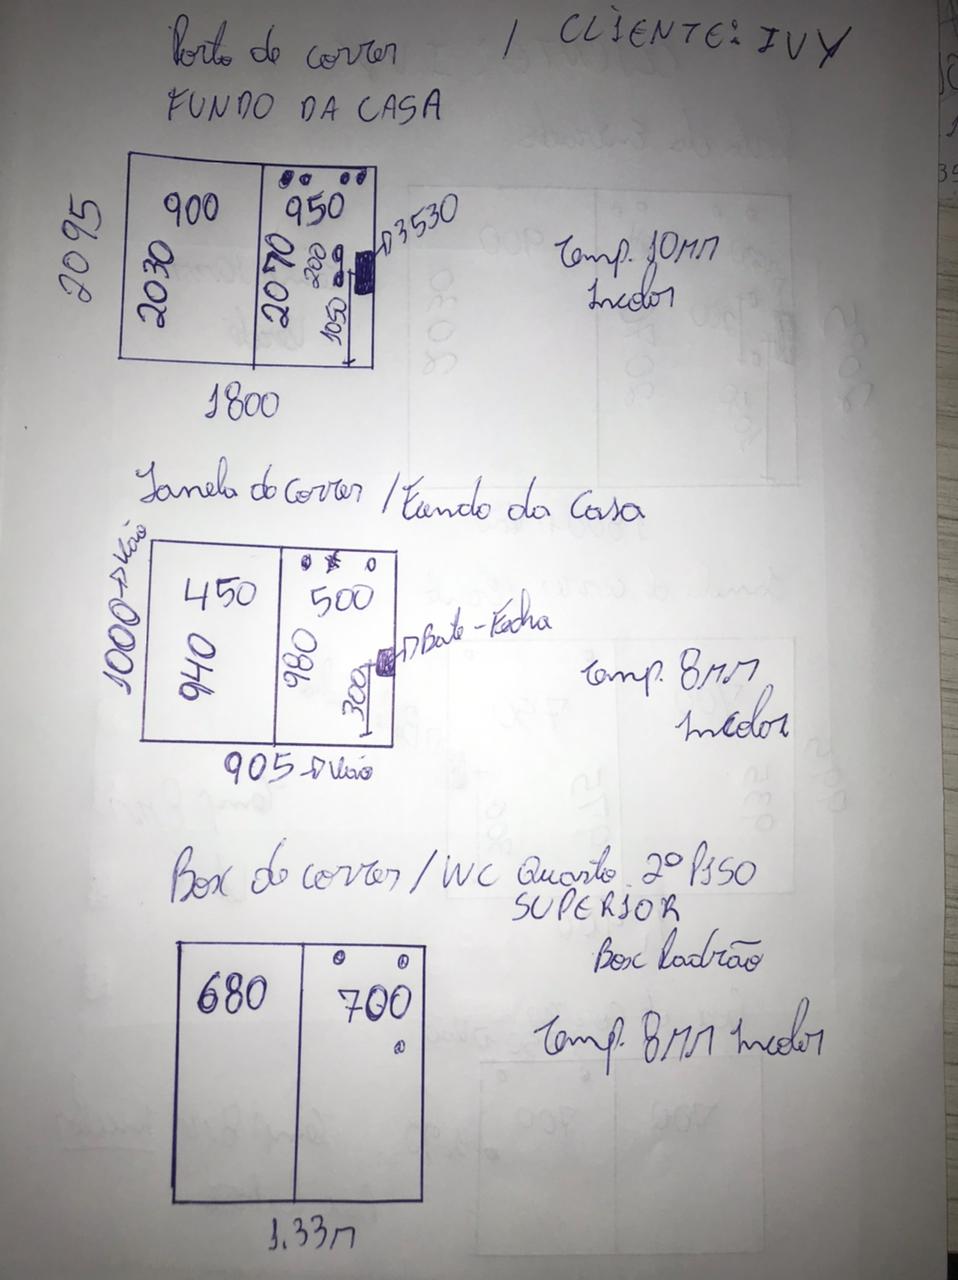 Porta de correr / CLIENTE: IVY
FUNDO DA CASA
2095
900
2030
950
2070
200
1050
3530
1800
Temp. 10MM
Incolor
Janela de Correr / Fundo da Casa
1000 Vão
450
940
500
980
300
Bate-Fecha
905 Vão
Temp. 8MM
Incolor
Box de correr / WC Quarto 2º PISO
SUPERIOR
Box Padrão
680
700
Temp. 8MM Incolor
1.33M